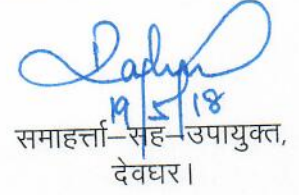 19/5/18
समाहर्त्ता–सह–उपायुक्त,
देवघर।